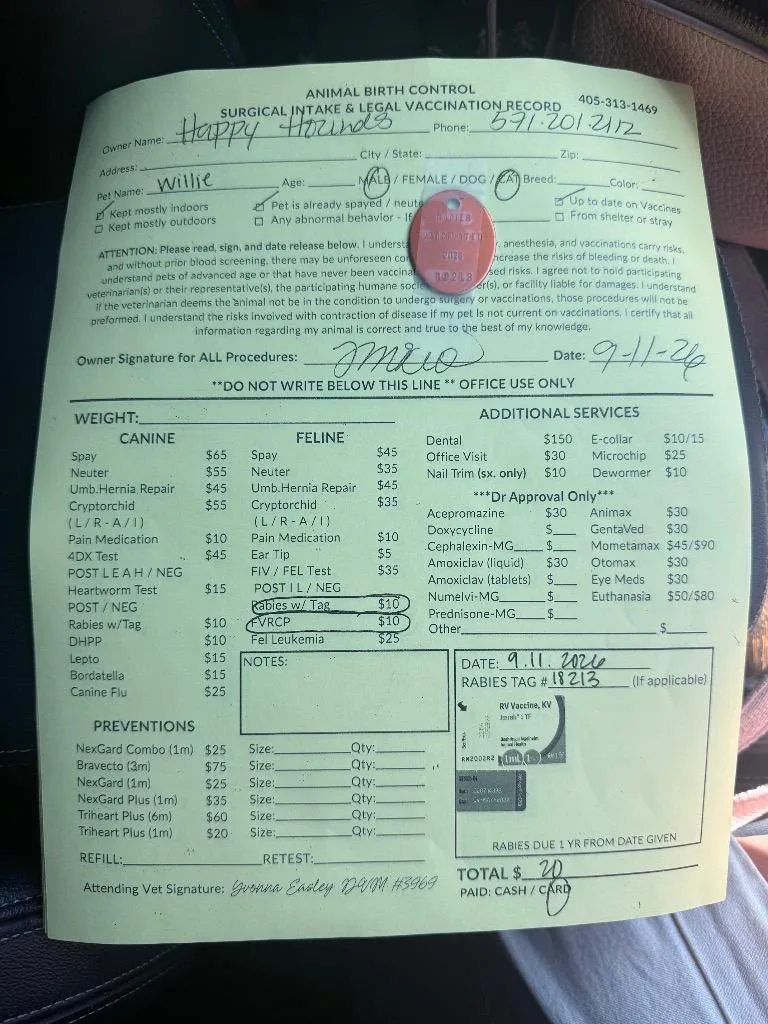 ANIMAL BIRTH CONTROL
SURGICAL INTAKE & LEGAL VACCINATION RECORD 405-313-1469
Owner Name: Happy Hounds Phone: 591-201-2112
Address: City / State: Zip:
Pet Name: Willie Age: MALE / FEMALE / DOG / CAT Breed: Color:
Kept mostly indoors Pet is already spayed / neute Up to date on Vaccines
Kept mostly outdoors Any abnormal behavior - If From shelter or stray
ATTENTION: Please read, sign, and date release below. I understa , anesthesia, and vaccinations carry risks,
and without prior blood screening, there may be unforeseen co ncrease the risks of bleeding or death. I
understand pets of advanced age or that have never been vaccina sed risks. I agree not to hold participating
veterinarian(s) or their representative(s), the participating humane soci er(s), or facility liable for damages. I understand
if the veterinarian deems the animal not be in the condition to undergo surgery or vaccinations, those procedures will not be
preformed. I understand the risks involved with contraction of disease if my pet is not current on vaccinations. I certify that all
information regarding my animal is correct and true to the best of my knowledge.
VACCINATED
Owner Signature for ALL Procedures: Date: 9-11-26
**DO NOT WRITE BELOW THIS LINE ** OFFICE USE ONLY
WEIGHT:
CANINE
Spay $65
Neuter $55
Umb.Hernia Repair $45
Cryptorchid $55
( L / R - A / I )
Pain Medication $10
4DX Test $45
POST L E A H / NEG
Heartworm Test $15
POST / NEG
Rabies w/Tag $10
DHPP $10
Lepto $15
Bordatella $15
Canine Flu $25
FELINE
Spay $45
Neuter $35
Umb.Hernia Repair $45
Cryptorchid $35
( L / R - A / I )
Pain Medication $10
Ear Tip $5
FIV / FEL Test $35
POST I L / NEG
Rabies w/ Tag $10
FVRCP $10
Fel Leukemia $25
NOTES:
ADDITIONAL SERVICES
Dental $150 E-collar $10/15
Office Visit $30 Microchip $25
Nail Trim (sx. only) $10 Dewormer $10
***Dr Approval Only***
Acepromazine $30 Animax $30
Doxycycline $ GentaVed $30
Cephalexin-MG $ Mometamax $45/$90
Amoxiclav (liquid) $30 Otomax $30
Amoxiclav (tablets) $ Eye Meds $30
Numelvi-MG $ Euthanasia $50/$80
Prednisone-MG $
Other $
PREVENTIONS
NexGard Combo (1m) $25 Size: Qty:
Bravecto (3m) $75 Size: Qty:
NexGard (1m) $25 Size: Qty:
NexGard Plus (1m) $35 Size: Qty:
Triheart Plus (6m) $60 Size: Qty:
Triheart Plus (1m) $20 Size: Qty:
REFILL: RETEST:
Attending Vet Signature: Yvonna Easley DVM #3969
DATE: 9.11.2026
RABIES TAG # 18213 (If applicable)
RV Vaccine, KV
Imrab® 1 TF
Boehringer Ingelheim
Animal Health
1mL 1
RABIES DUE 1 YR FROM DATE GIVEN
TOTAL $ 20
PAID: CASH / CARD